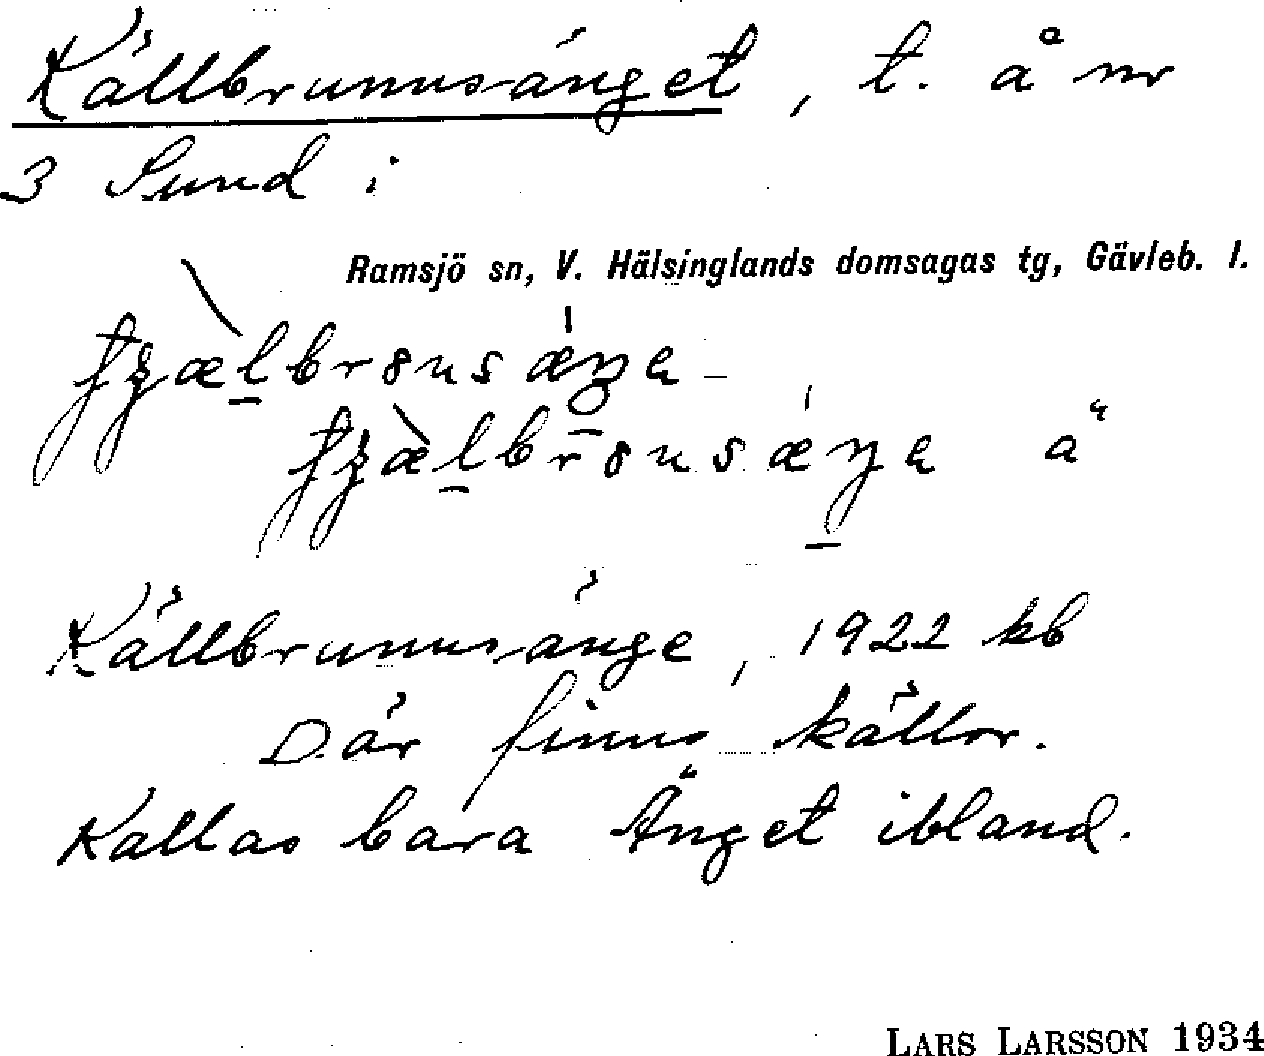 Källbrunnsänget, t. å nr
3 Sund i
Ramsjö sn, V. Hälsinglands domsagas tg, Gävleb. l.
Källbrunnsänge, 1922 kb
Där finns källor.
Kallas bara Änget ibland.
LARS LARSSON 1934